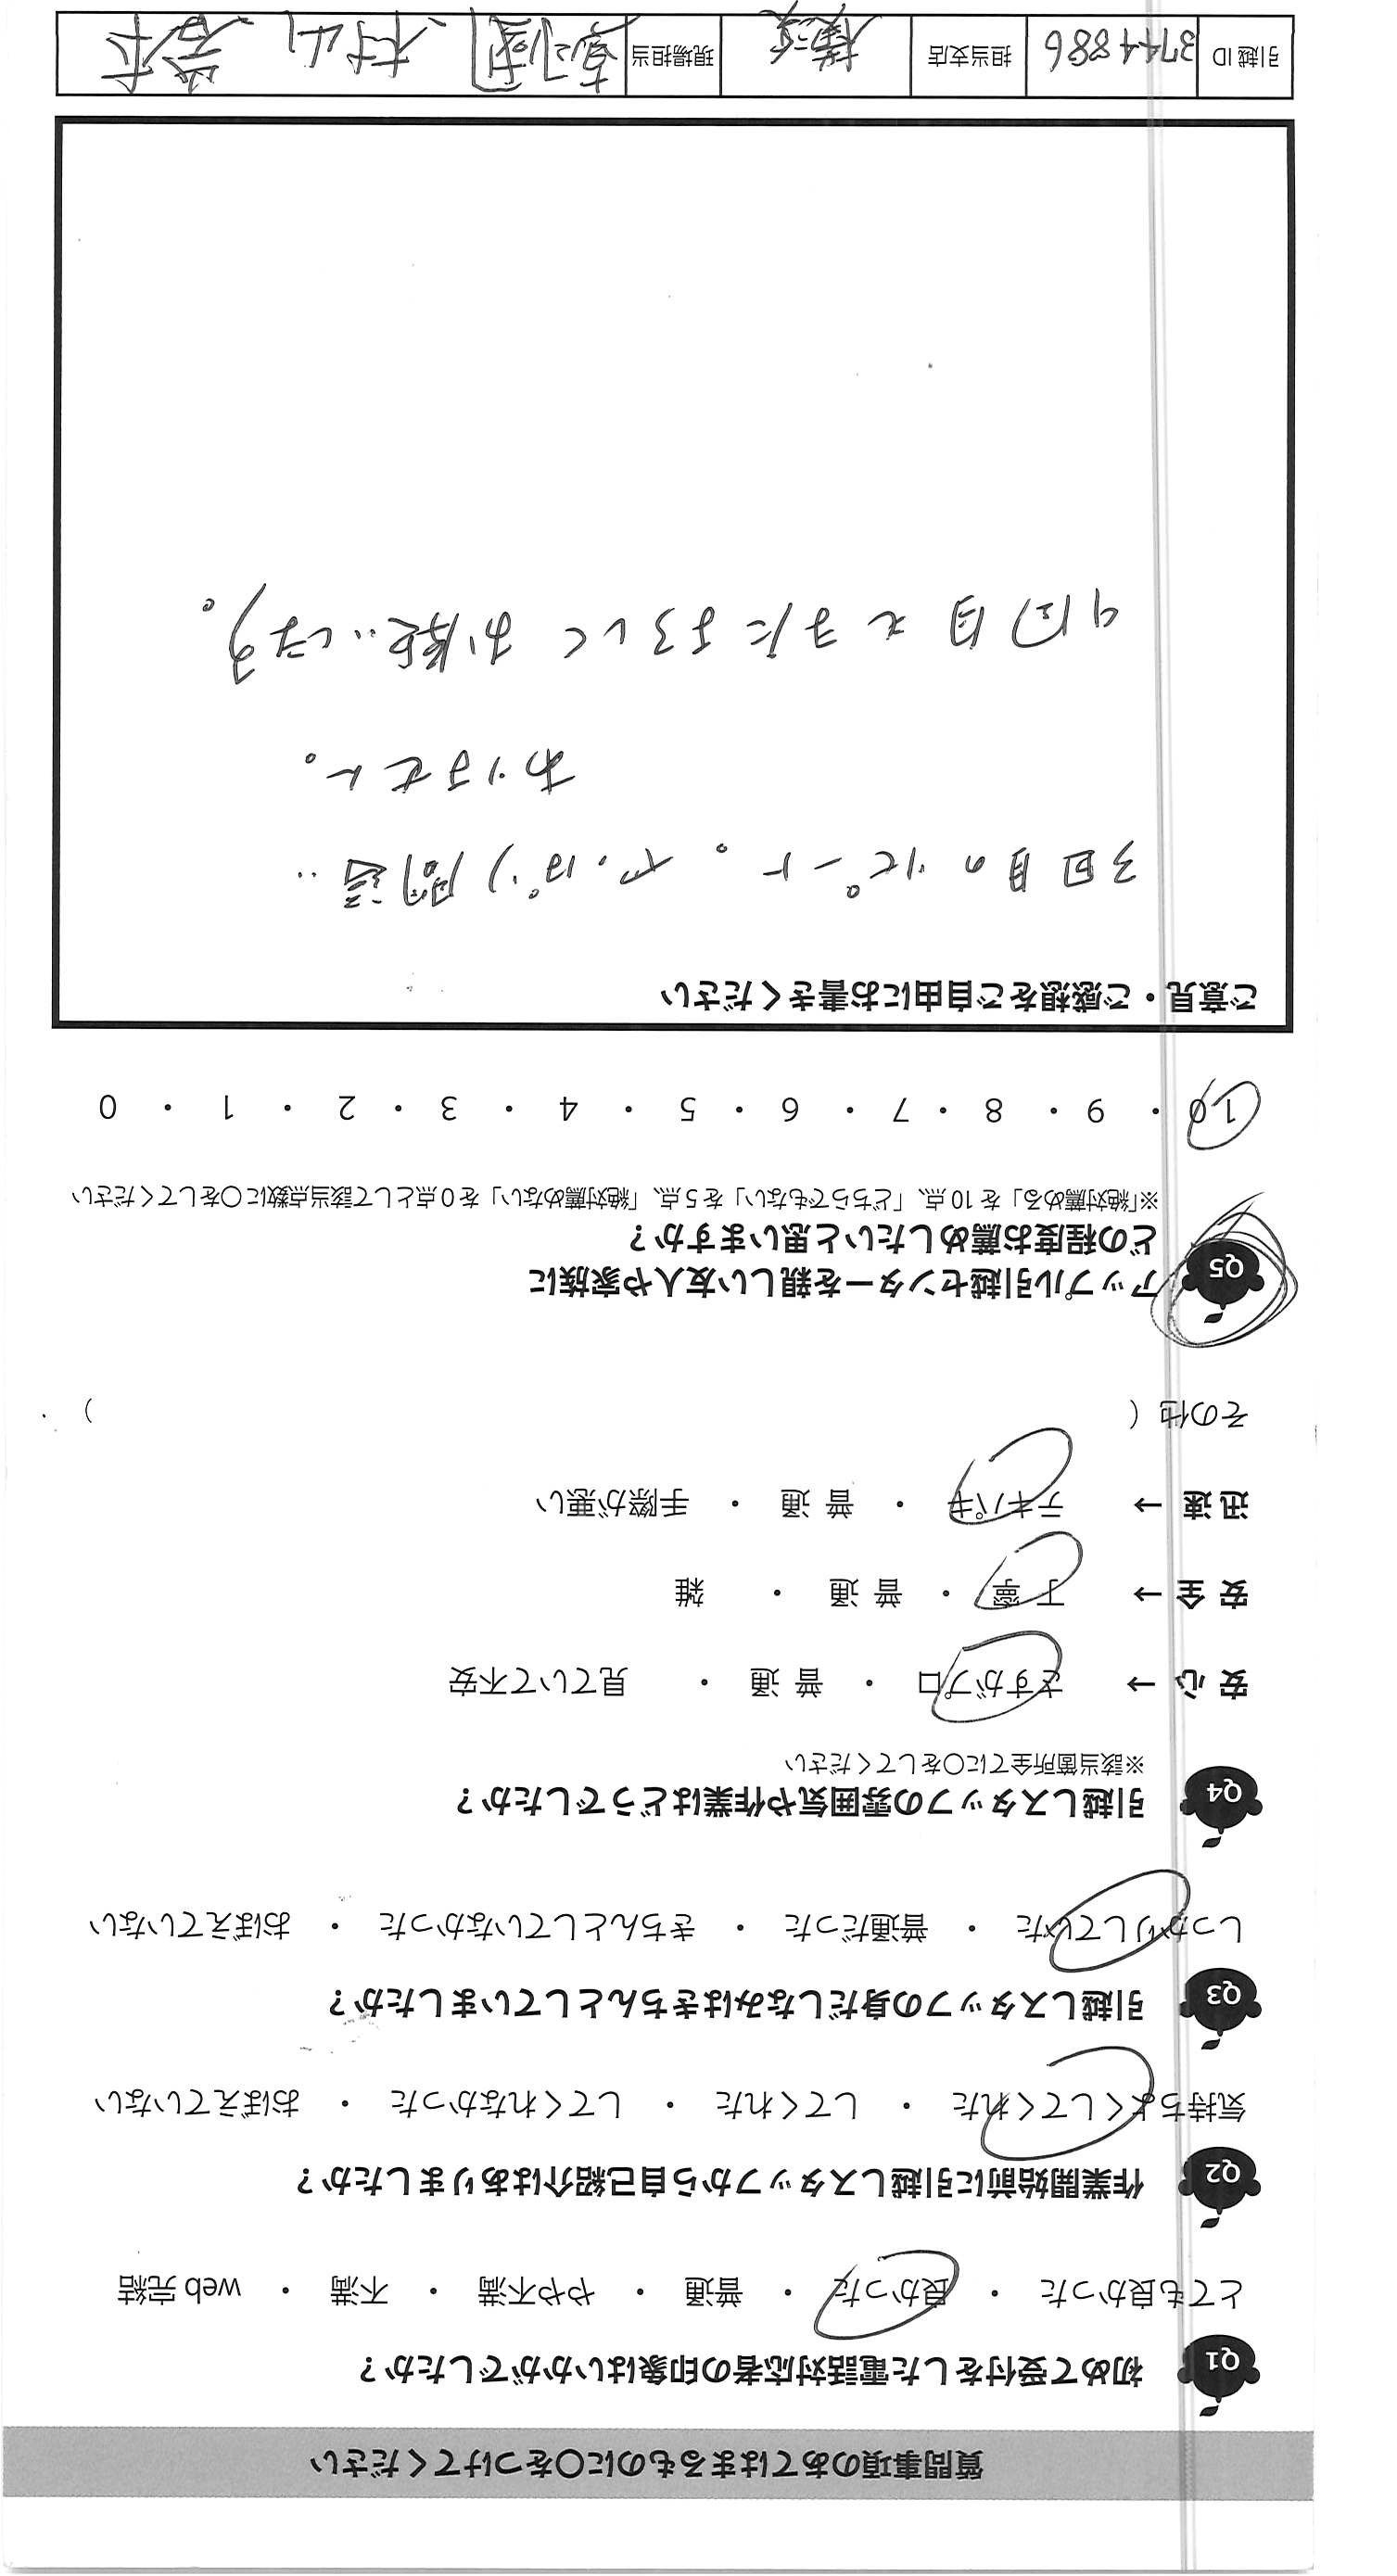 質問事項のあてはまるものに○をつけてください
Q1 初めて受付をした電話対応者の印象はいかがでしたか？
とても良かった ・ 良かった ・ 普通 ・ やや不満 ・ 不満 ・ web 完結
Q2 作業開始前に引越しスタッフから自己紹介はありましたか？
気持ちよくしてくれた ・ してくれた ・ してくれなかった ・ おぼえていない
Q3 引越しスタッフの身だしなみはきちんとしていましたか？
しっかりしていた ・ 普通だった ・ きちんとしていなかった ・ おぼえていない
Q4 引越しスタッフの雰囲気や作業はどうでしたか？
※該当箇所全てに○をしてください
安心→ さすがプロ ・ 普通 ・ 見ていて不安
安全→ 丁寧 ・ 普通 ・ 雑
迅速→ テキパキ ・ 普通 ・ 手際が悪い
その他（ ）
Q5 アップル引越センターを親しい友人や家族に
どの程度お薦めしたいと思いますか？
※「絶対薦める」を10点、「どちらでもない」を5点、「絶対薦めない」を0点として該当点数に○をしてください
10 ・ 9 ・ 8 ・ 7 ・ 6 ・ 5 ・ 4 ・ 3 ・ 2 ・ 1 ・ 0
ご意見・ご感想をご自由にお書きください
3回目のリピート。やっぱり間違い
ありません。
4回目もまたよろしくお願いします。
引越ID 3744886 担当支店 横浜 現場担当 村山 岩本